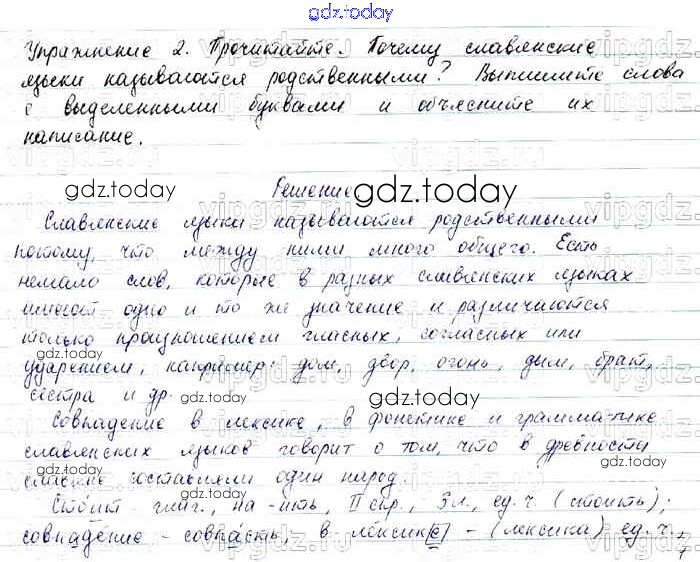 gdz.today
Упражнение 2. Прочитайте. Почему славянские
языки называются родственными? Выпишите слова
с выделенными буквами и объясните их
написание.
gdz.today
Решение
gdz.today
Славянские языки называются родственными
потому, что между ними много общего. Есть
немало слов, которые в разных славянских языках
имеют одно и то же значение и различаются
только произношением гласных, согласных или
gdz.today
ударением, например: дом, двор, огонь, дым, брат,
gdz.today
сестра и др.
Совпадение в лексике, в фонетике и грамматике
славянских языков говорит о том, что в древности
gdz.today
славяне составляли один народ.
gdz.today
Стоит - глаг., на -ить, II спр., 3 л., ед. ч. (стоить);
совпадение - совпасть, в лексик[е] - (лексика) ед. ч.,